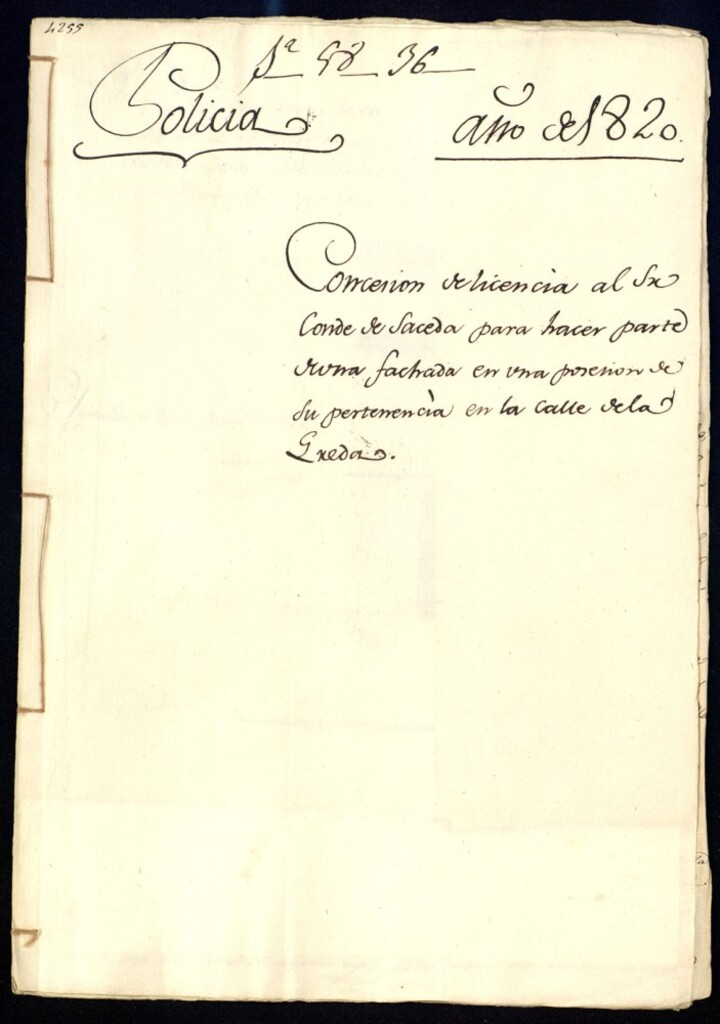 4255
1ª 58 36
Policia
año de 1820.
Concesion de licencia al Sr
Conde de Saceda para hacer parte
de una fachada en una posesion de
su pertenencia en la Calle de la
Greda.